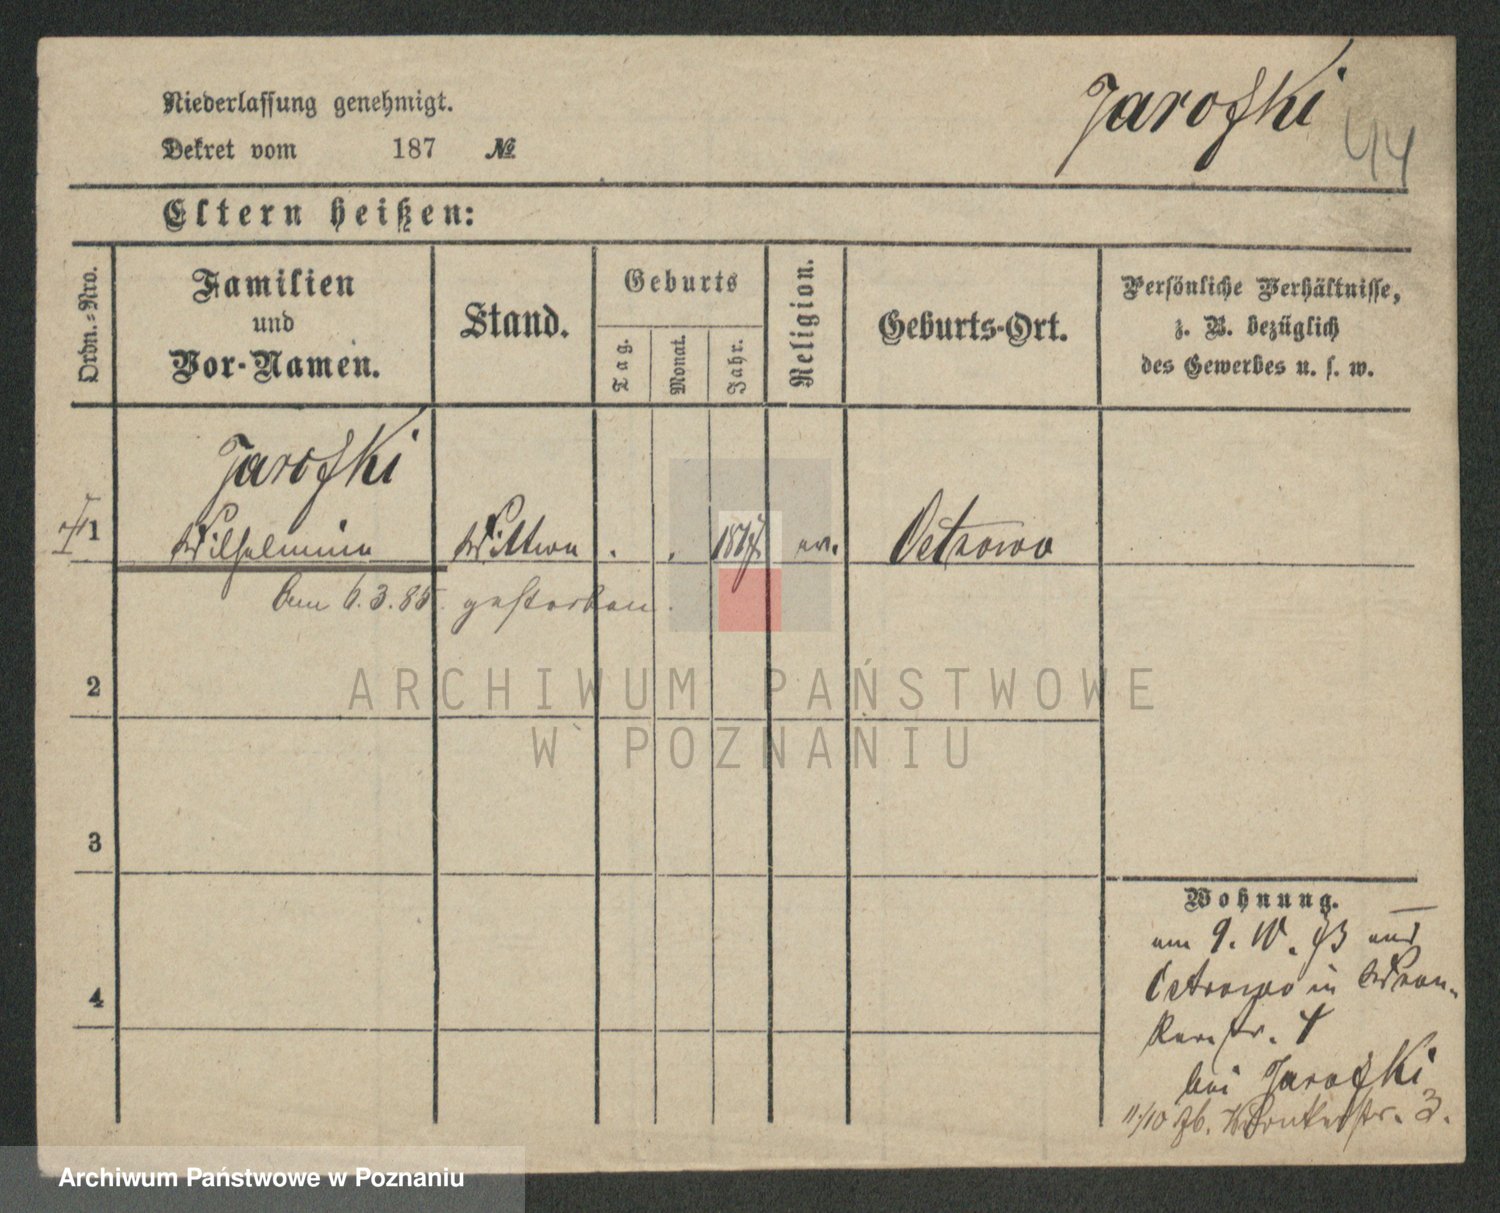 Niederlassung genehmigt.
Dekret vom 187 №
Jarofski
44
Eltern heißen:
Ordn.=Nro.
Familien
und
Vor-Namen.
Stand.
Geburts
Tag.
Monat.
Jahr.
Religion.
Geburts-Ort.
Persönliche Verhältnisse,
z. B. bezüglich
des Gewerbes u. s. w.
Jarofski
1 Wilhelmine Wittwe . . ev. Ostrowo
Am 6.3.85. gestorben.
2
3
4
Wohnung.
am 9. 10. 73 aus
Ostrowo in Wron-
kerstr. 4
bei Jarofski
11/10 76. Wronkerstr. 3.
ARCHIWUM PAŃSTWOWE
W POZNANIU
Archiwum Państwowe w Poznaniu